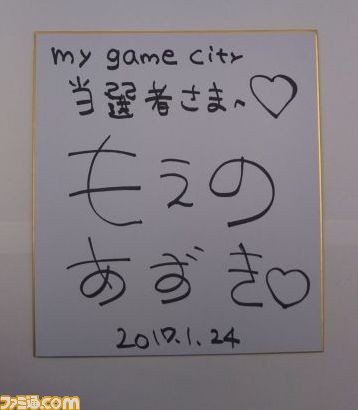 my game city
当選者さまへ♡
もえの
あずき♡
2017.1.24
ファミ通.com